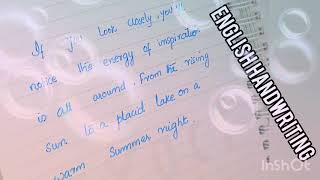 If you look closely, you'll
notice the energy of inspiration
is all around. From the rising
sun to a placid lake on a
warm summer night.
ENGLISH HANDWRITING
InShOt